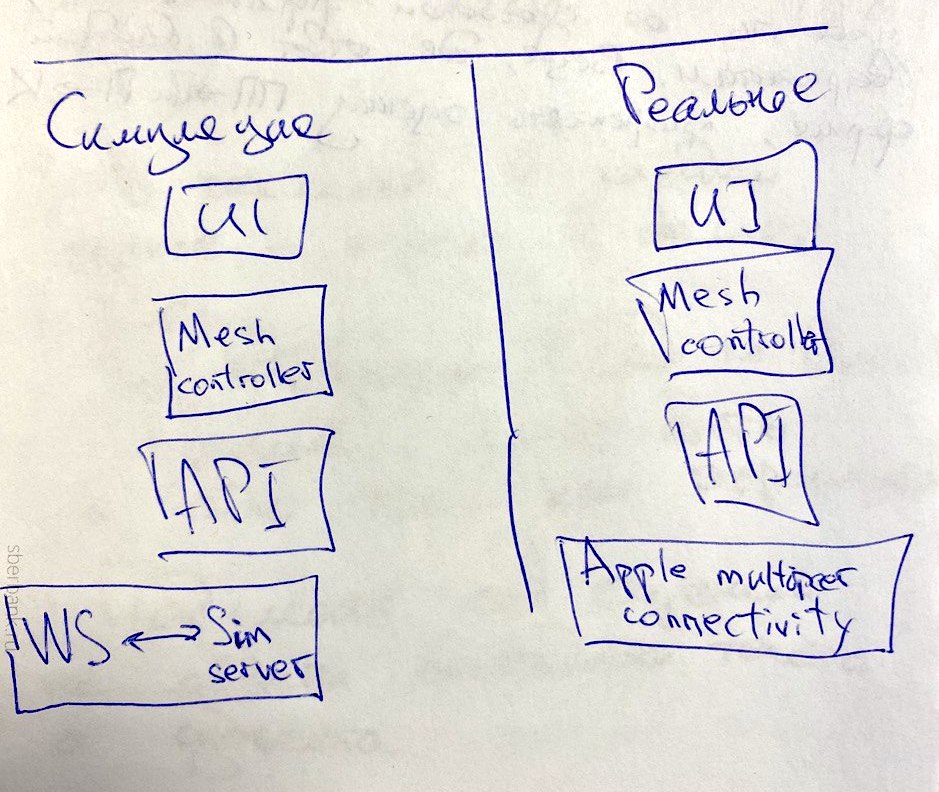 Симуляция
UI
Mesh
controller
API
WS ↔ Sim
server
Реальное
UI
Mesh
controller
API
Apple multipeer
connectivity